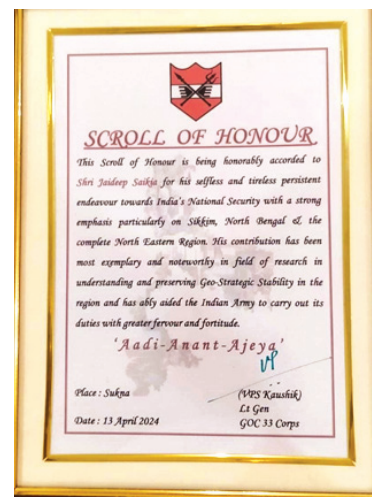 SCROLL OF HONOUR
This Scroll of Honour is being honorably accorded to
Shri Jaideep Saikia for his selfless and tireless persistent
endeavour towards India's National Security with a strong
emphasis particularly on Sikkim, North Bengal & the
complete North Eastern Region. His contribution has been
most exemplary and noteworthy in field of research in
understanding and preserving Geo-Strategic Stability in the
region and has ably aided the Indian Army to carry out its
duties with greater fervour and fortitude.
'Aadi-Anant-Ajeya'
Place : Sukna
(VPS Kaushik)
Lt Gen
Date : 13 April 2024
GOC 33 Corps